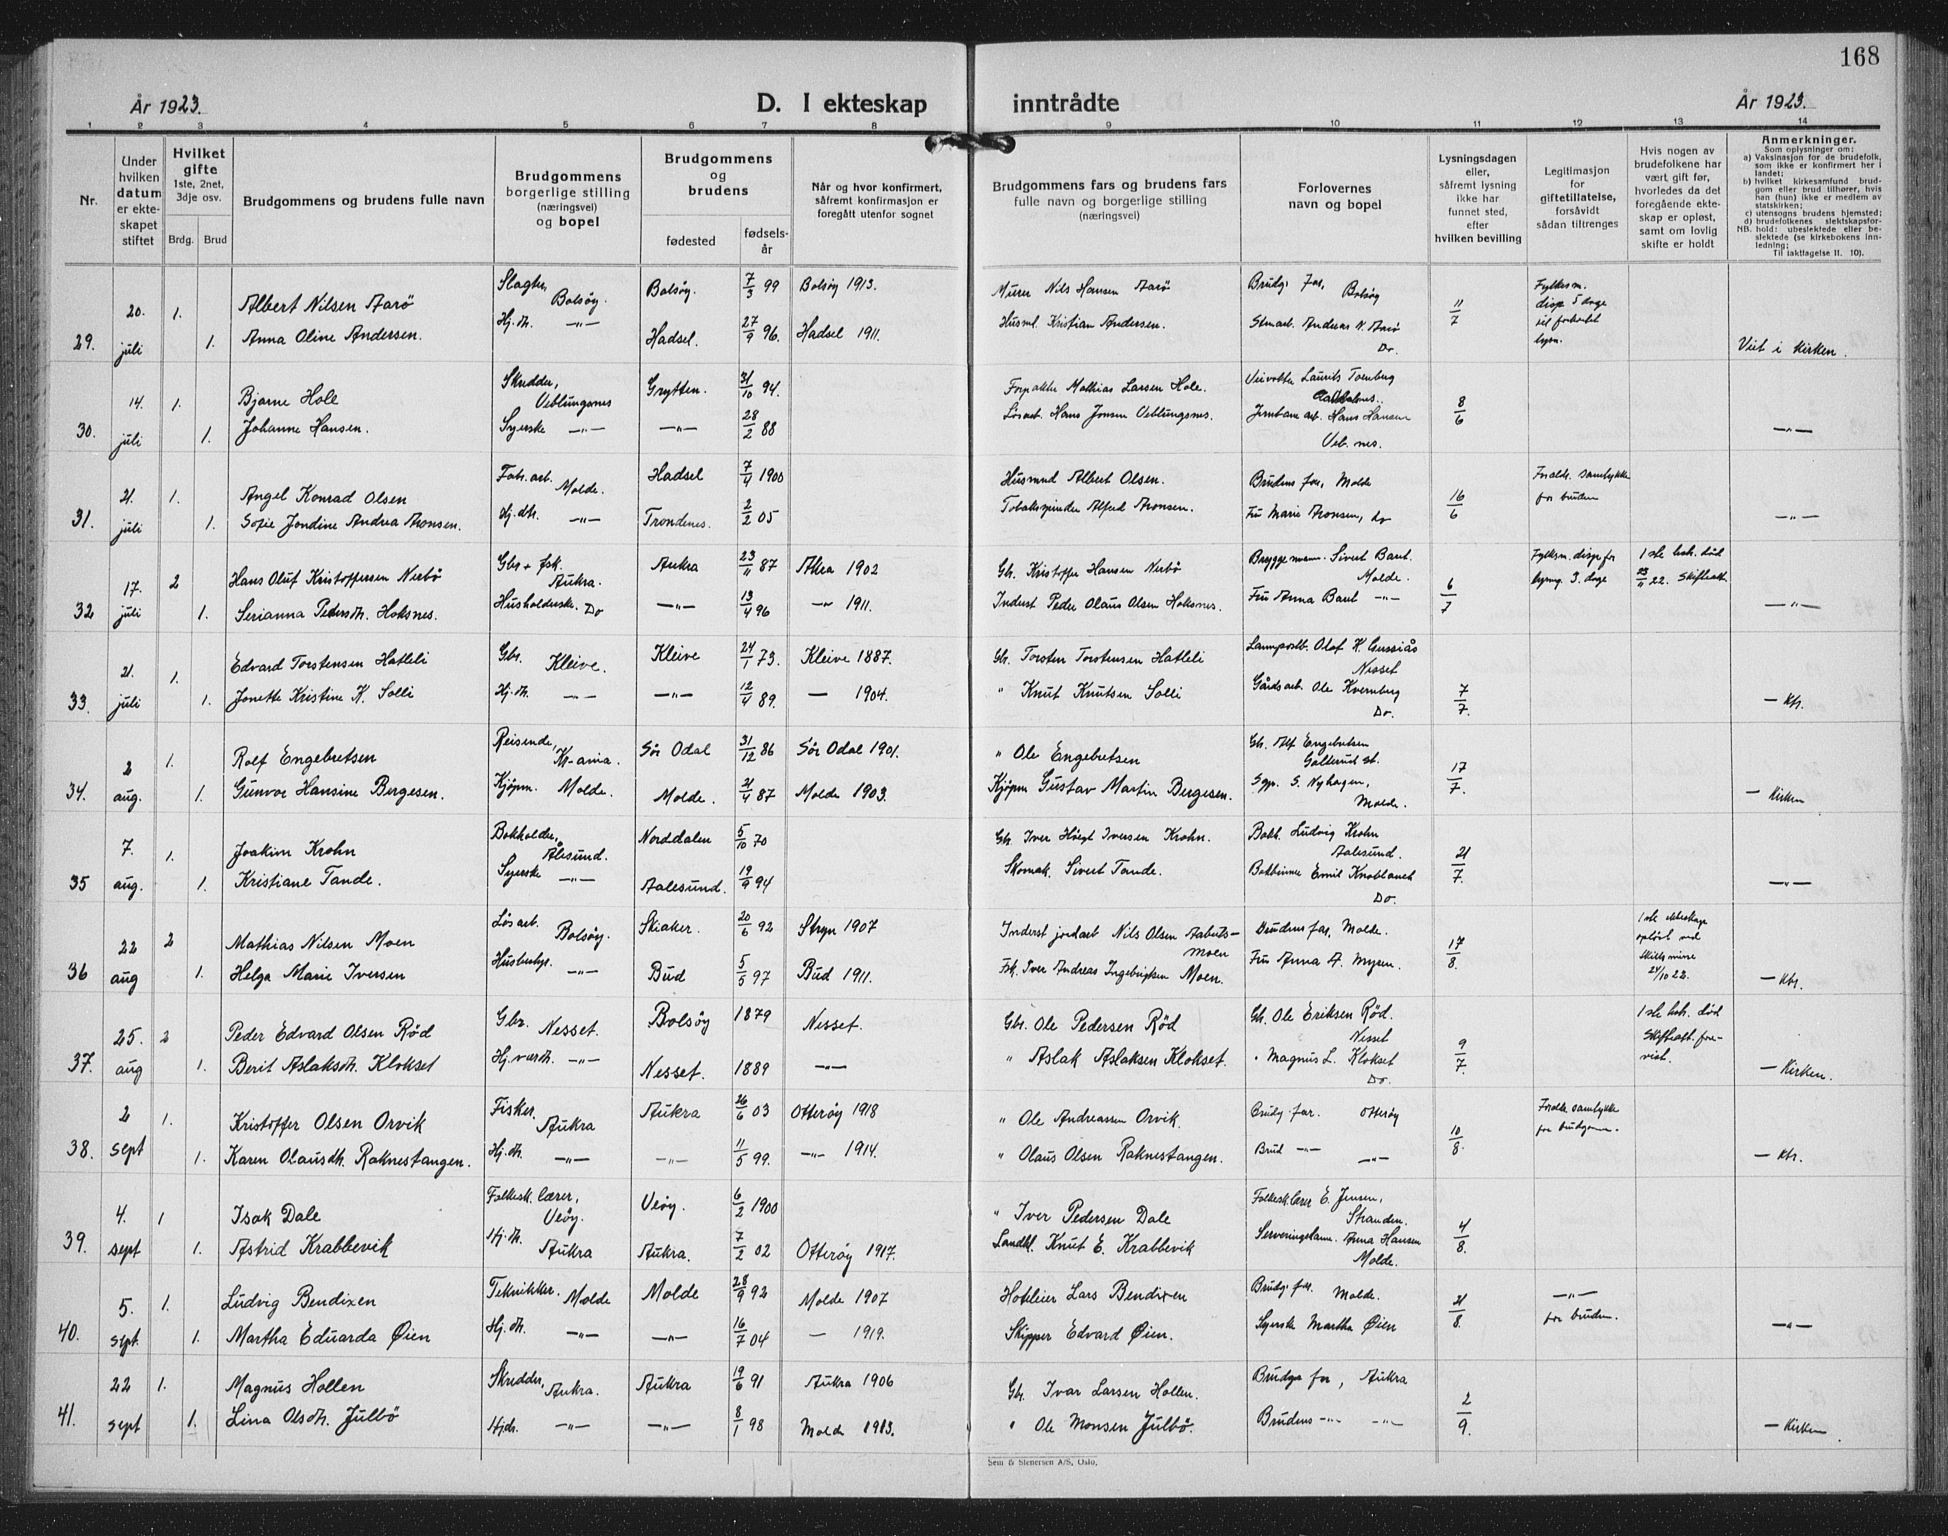 168
År 1923.
D. I ekteskap inntrådte
År 1923.
1 2 3 4 5 6 7 8 9 10 11 12 13 14
Nr.
Under hvilken datum er ekteskapet stiftet
Hvilket gifte
1ste, 2net, 3dje osv.
Brdg. Brud
Brudgommens og brudens fulle navn
Brudgommens borgerlige stilling (næringsvei) og bopel
Brudgommens og brudens
fødested
fødselsår
Når og hvor konfirmert, såfremt konfirmasjon er foregått utenfor sognet
Brudgommens fars og brudens fars fulle navn og borgerlige stilling (næringsvei)
Forlovernes navn og bopel
Lysningsdagen eller, såfremt lysning ikke har funnet sted, efter hvilken bevilling
Legitimasjon for giftetillatelse, forsåvidt sådan tiltrenges
Hvis nogen av brudefolkene har vært gift før, hvorledes da det foregående ekteskap er opløst, samt om lovlig skifte er holdt
Anmerkninger.
Som oplysninger om:
a) Vaksinasjon for de brudefolk, som ikke er konfirmert her i landet;
b) hvilket kirkesamfund brudgom eller brud tilhører, hvis han (hun) ikke er medlem av statskirken;
c) utensogns brudens hjemsted;
d) brudefolkenes slektskapsforhold: ubeslektede eller beslektede (se kirkebokens innledning;
NB.
Til iakttagelse II. 10).
29. 20. juli 1. Albert Nilsen Aarö Slagter, Bolsöy. Bolsöy. 7/3 99 Bolsöy 1913. Murer Nils Hansen Aarö Brudg. far, Bolsöy 11/7 Fylkesm. disp 5 dage
1. Anna Oline Andersen. Hj. dt. —"— Hadsel. 27/9 96. Hadsel 1911. Husm. Kristian Andersen. Andreas N. Aarö Do. Viet i kirken.
30. 14. juli 1. Bjarne Hole Skredder, Veblungsnes Grytten. 31/10 94. Mathias Larsen Hole. Laurits 8/6
1. Johanne Hansen. Syerske —"— —"— 28/2 88 Lösarb. Hans Jonsen Veblungsnes. Jernbane arb. Hans Hansen Veb. nes. —"—
31. 21. juli 1. Angel Konrad Olsen Fabr. arb. Molde. Hadsel 7/4 1900 Husmd Albert Olsen. Brudens far, Molde 16/6 Foreldr. samtykke for bruden
1. Sofie Jondine Andrea Aronsen. Hj. dtr. —"— Trondenes. 2/2 05 Tobakspinder Alfred Aronsen. Fru Marie Aronsen, do —"—
32 17. juli 2 Hans Oluf Kristoffersen Nerbö Gbr + fsk. Aukra. Aukra 23/11 87 Akra 1902 Gb. Kristoffer Hansen Nerbö Bryggemann. Sivert Baut. Molde. 6/7 Fylkesm. disp for lysning 3. dage 1ste hak. död 23/11 22. Skifteatt.
1. Serianna Pedersdt. Hoksnes. Husholderske. Do —"— 13/4 96 —"— 1911. Inderst Peder Olaus Olsen Hoksnes. Fru Anna Baut —"— —"—
33. 21. juli 1. Edvard Torstensen Hatleli Gbr. Kleive. Kleive 24/1 73. Kleive 1887. Gb. Torsten Torstensen Hatleli Olaf K. Gussiås Nesset 7/7.
1. Jonette Kristine K. Solli Hj. dt. —"— —"— 12/4 89. — 1904. " Knut Knutsen Solli Gårdsarb. Ole Kvernberg Do. — Kbr.
34. 2 aug. 1. Rolf Engebretsen Reisende, Kr-ania. Sör Odal 31/12 86 Sör Odal 1901. " Ole Engebretsen Gb. Alf Engebretsen Galterud st. 17/7.
1. Gunvor Hansine Bergesen. Kjöpm. Molde. Molde. 21/4 87 Molde 1903. Kjöpm Gustav Martin Bergesen. S. Nyhagen, Molde. — Kirken
35 7. aug. 1. Joakim Krohn Bokholder, Ålesund. Norddalen 5/10 70 Gb Iver Höigt Iversen Krohn. Bokh. Ludvig Krohn Aalesund. 21/7.
1. Kristiane Tande. Syerske —"— Aalesund. 19/9 94 Skomak. Sivert Tande. Bokbinner Emil Knoblauch Do. —"—
36 22 aug 2 Mathias Nilsen Moen Lösarb. Bolsöy. Skiaker. 20/6 92 Stryn 1907 Inderst jordarb Nils Olsen Aabets-Moen Brudens far, Molde. 17/8. 1ste ekteskap oplöst ved 21/10 22.
1. Helga Marie Iversen Husbestyr. —"— Bud 5/5 97 Bud 1911. Fsk. Iver Andreas Ingebrigtsen Moen. Fru Anna A. Myren. — Kbr.
37. 25. aug 2 Peder Edvard Olsen Röd Gbr. Nesset. Bolsöy 1879 Nesset. Gbr. Ole Pedersen Röd Gb. Ole Eriksen Röd. Nesset 9/7. 1ste hak. död Skifteatt. forevist.
1. Berit Aslaksdt. Klokset Hj. værdt. —"— Nesset. 1889 —"— " Aslak Aslaksen Klokset. " Magnus L. Klokset Do. — Kirken.
38. 2 sept 1. Kristoffer Olsen Orvik Fisker. Aukra Aukra 26/6 03 Otteröy 1918 " Ole Andreassen Orvik. Brudg. far. Otteröy 10/8. Foreldr. samtykke for brudgommen.
1. Karen Olausdt. Raknestangen. Hj. dt. —"— —"— 11/5 99. —"— 1914. " Olaus Olsen Raknestangen. Brud —"— —"— — Kbr.
39. 4. sept 1 Isak Dale Folkesk. lærer, Veöy. Veöy. 6/2 1900 " Iver Pedersen Dale Folkesk. lærer E. Jensen, Stranden. 4/8.
1. Astrid Krabbevik Hj. dt. Aukra Aukra. 7/2 02 Otteröy 1917. Landh. Knut E. Krabbevik Serveringsdame. Anna Hansen Molde.
40. 5. sept. 1. Ludvig Bendixen Teknikker. Molde Molde 28/9 92 Molde 1907 Hotelleier Lars Bendixen Brudg. far. Molde. 21/8. —"— for bruden.
1. Martha Eduarda Öien Hj. dt. —"— —"— 16/7 04 — 1919. Skipper Edvard Öien. Syerske Martha Öien —"—
41. 22 sept 1. Magnus Hollen Skredder, Aukra. Aukra 19/6 91 Aukra 1906 Gb. Ivar Larsen Hollen. Brudgs far, Aukra 2/9.
1. Lina Olsdt. Julbö Hjdr. —"— —"— 8/1 98 Molde 1913. " Ole Monsen Julbö. Brudens —"— —"— — Kirken
Sem & Stenersen A/S, Oslo.